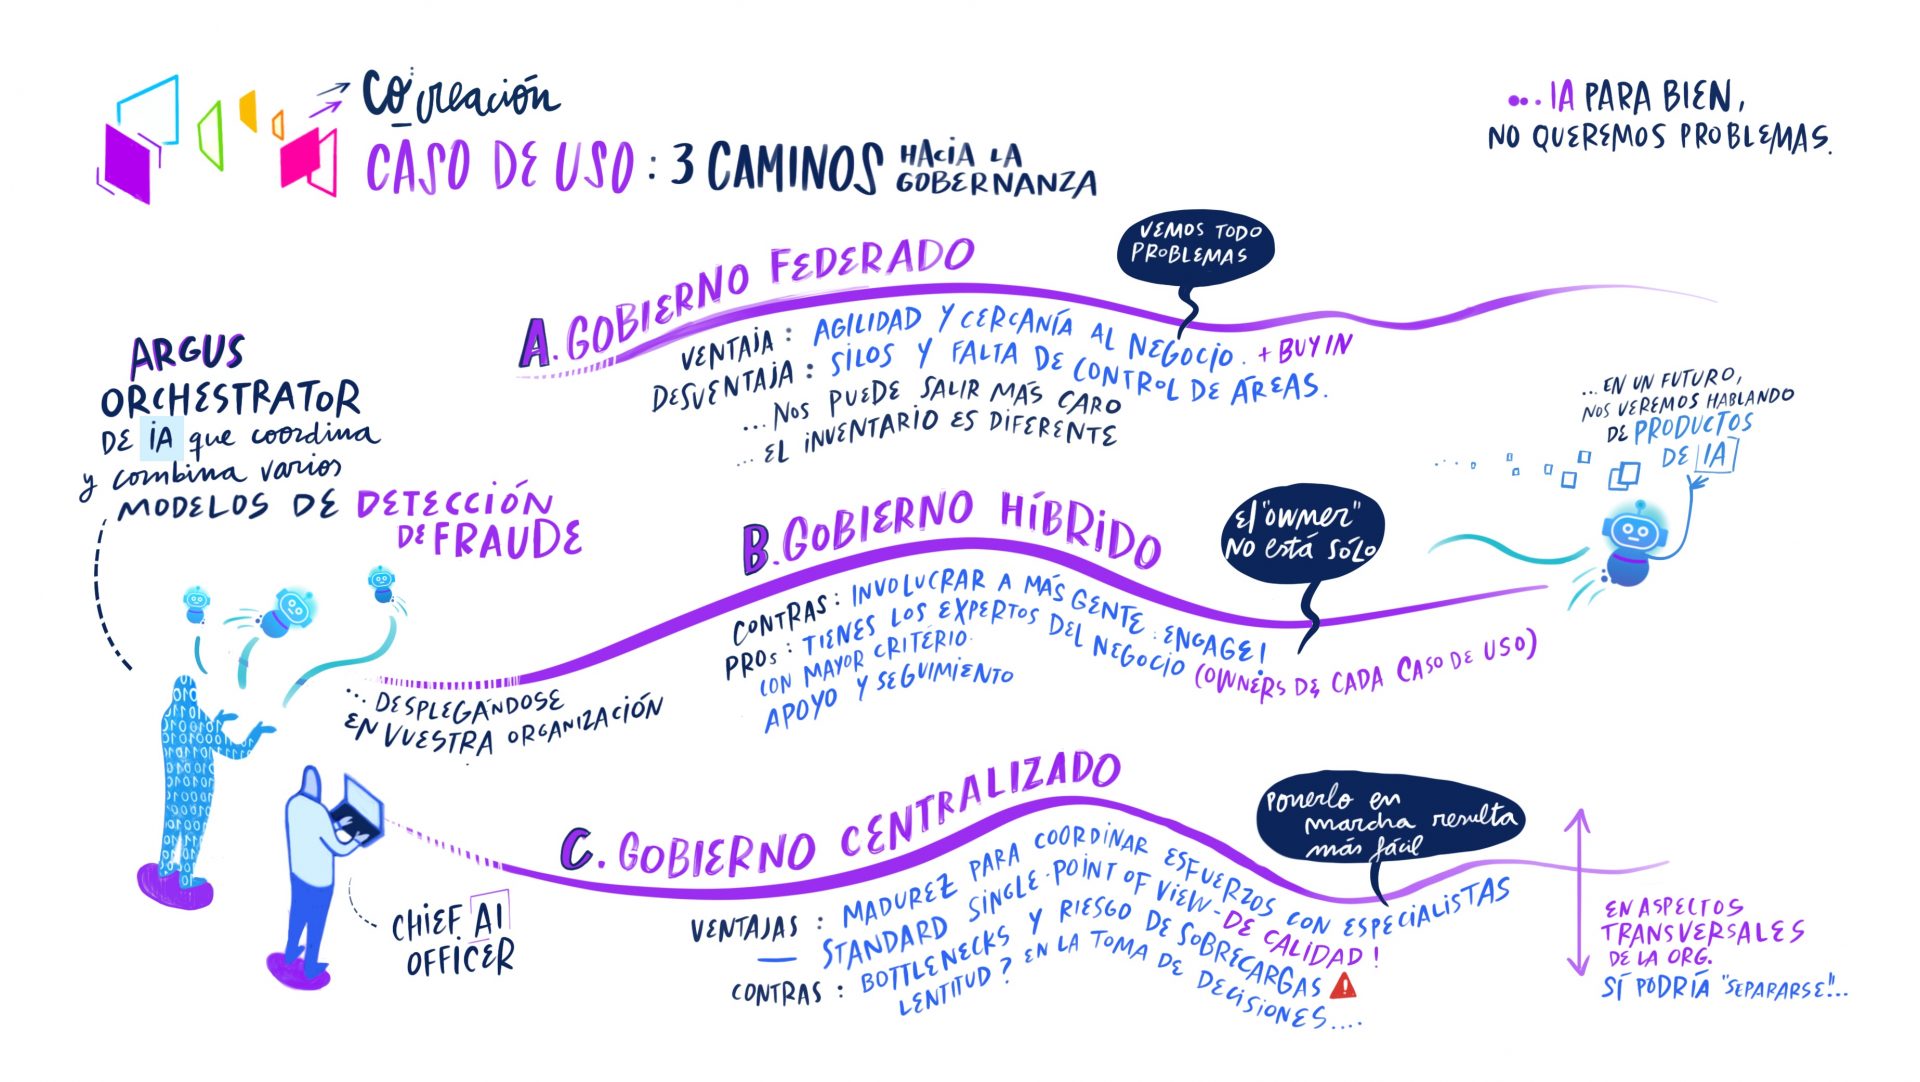 Co creación
CASO DE USO: 3 CAMINOS HACIA LA
GOBERNANZA
... IA PARA BIEN,
NO QUEREMOS PROBLEMAS.
ARGUS
ORCHESTRATOR
DE IA que coordina
y combina varios
MODELOS DE DETECCIÓN
DE FRAUDE
A. GOBIERNO FEDERADO
VENTAJA: AGILIDAD Y CERCANÍA AL NEGOCIO. + BUY IN
DESVENTAJA: SILOS Y FALTA DE CONTROL DE ÁREAS.
... NOS PUEDE SALIR MÁS CARO
... EL INVENTARIO ES DIFERENTE
VEMOS TODO
PROBLEMAS
... EN UN FUTURO,
NOS VEREMOS HABLANDO
DE PRODUCTOS
DE IA
B. GOBIERNO HÍBRIDO
CONTRAS: INVOLUCRAR A MÁS GENTE. ENGAGE!
PROs: TIENES LOS EXPERTOS DEL NEGOCIO (OWNERS DE CADA CASO DE USO)
CON MAYOR CRITERIO.
APOYO Y SEGUIMIENTO
El "owner"
NO está sólo
... DESPLEGÁNDOSE
EN VUESTRA ORGANIZACIÓN
C. GOBIERNO CENTRALIZADO
VENTAJAS: MADUREZ PARA COORDINAR ESFUERZOS CON ESPECIALISTAS
— STANDARD SINGLE-POINT OF VIEW-DE CALIDAD!
CONTRAS: BOTTLENECKS Y RIESGO DE SOBRECARGAS
LENTITUD? EN LA TOMA DE DECISIONES....
Ponerlo en
marcha resulta
más fácil
CHIEF AI
OFFICER
EN ASPECTOS
TRANSVERSALES
DE LA ORG.
SÍ PODRÍA "SEPARARSE"...